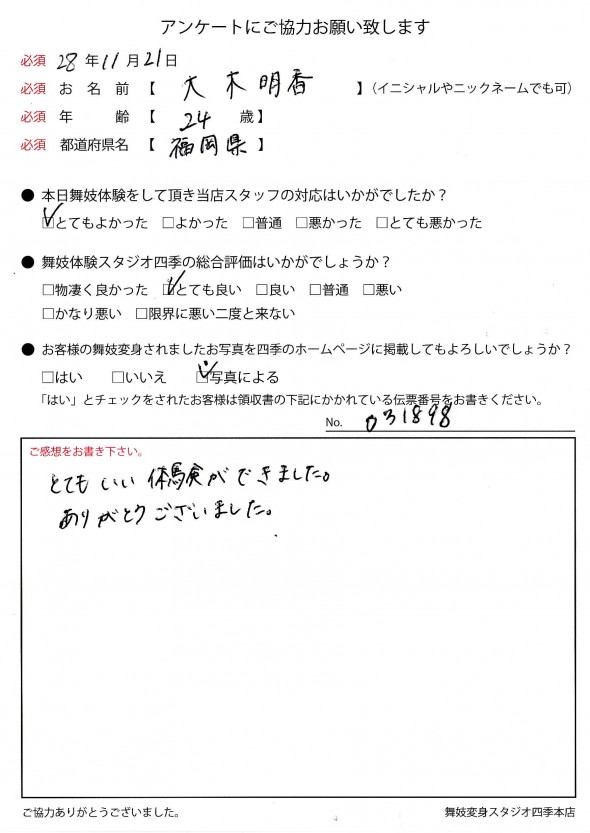 アンケートにご協力お願い致します
必須 28 年 11 月 21 日
必須 お名前 【 大木明香 】（イニシャルやニックネームでも可）
必須 年齢 【 24 歳】
必須 都道府県名 【 福岡県 】
● 本日舞妓体験をして頂き当店スタッフの対応はいかがでしたか？
☑とてもよかった □よかった □普通 □悪かった □とても悪かった
● 舞妓体験スタジオ四季の総合評価はいかがでしょうか？
□物凄く良かった ☑とても良い □良い □普通 □悪い
□かなり悪い □限界に悪い二度と来ない
● お客様の舞妓変身されましたお写真を四季のホームページに掲載してもよろしいでしょうか？
□はい □いいえ ☑写真による
「はい」とチェックをされたお客様は領収書の下記にかかれている伝票番号をお書きください。
No. 031898
ご感想をお書き下さい。
とてもいい体験ができました。
ありがとうございました。
ご協力ありがとうございました。 舞妓変身スタジオ四季本店